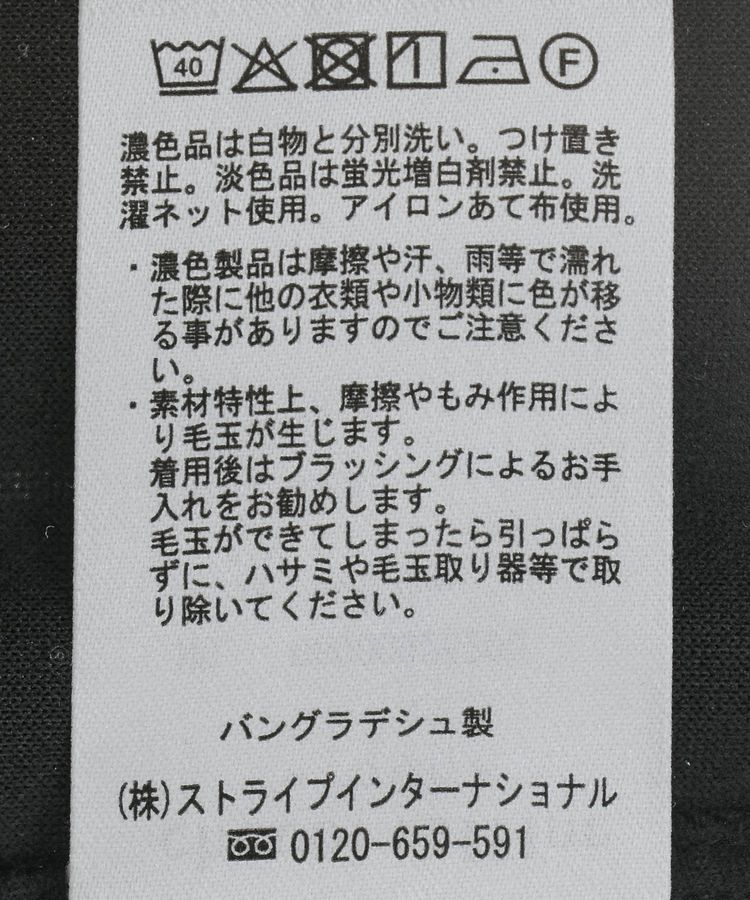 40 F
濃色品は白物と分別洗い。つけ置き
禁止。淡色品は蛍光増白剤禁止。洗
濯ネット使用。アイロンあて布使用。
・濃色製品は摩擦や汗、雨等で濡れ
た際に他の衣類や小物類に色が移
る事がありますのでご注意くださ
い。
・素材特性上、摩擦やもみ作用によ
り毛玉が生じます。
着用後はブラッシングによるお手
入れをお勧めします。
毛玉ができてしまったら引っぱら
ずに、ハサミや毛玉取り器等で取
り除いてください。
バングラデシュ製
(株)ストライプインターナショナル
0120-659-591